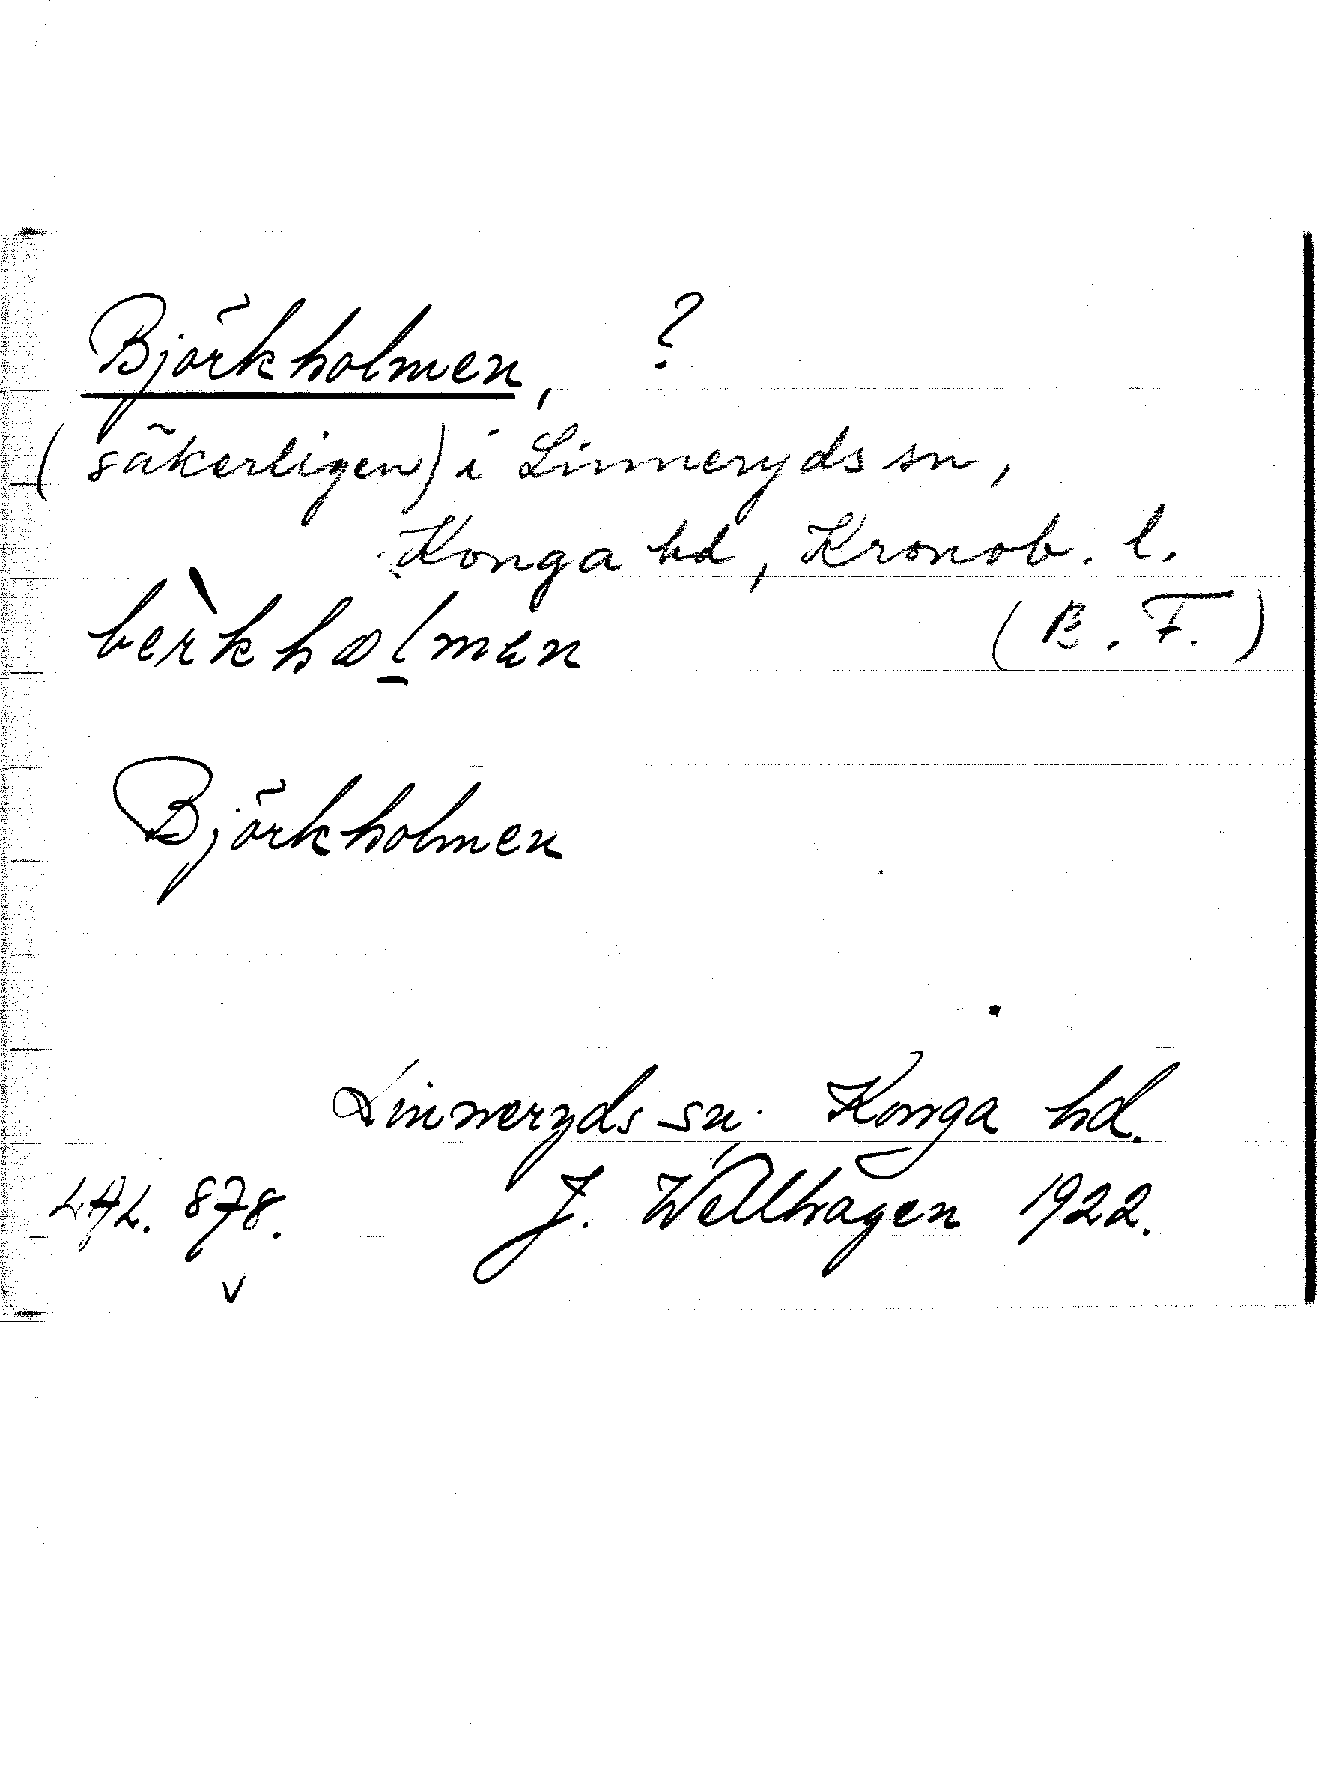 Björkholmen, ?
(säkerligen) i Linneryds sn,
Konga hd, Kronob. l.
bèrkhɷlmən
(B. F.)
Björkholmen
Linneryds sn. Konga hd.
LAL. 878. J. Wellhagen 1922.
v